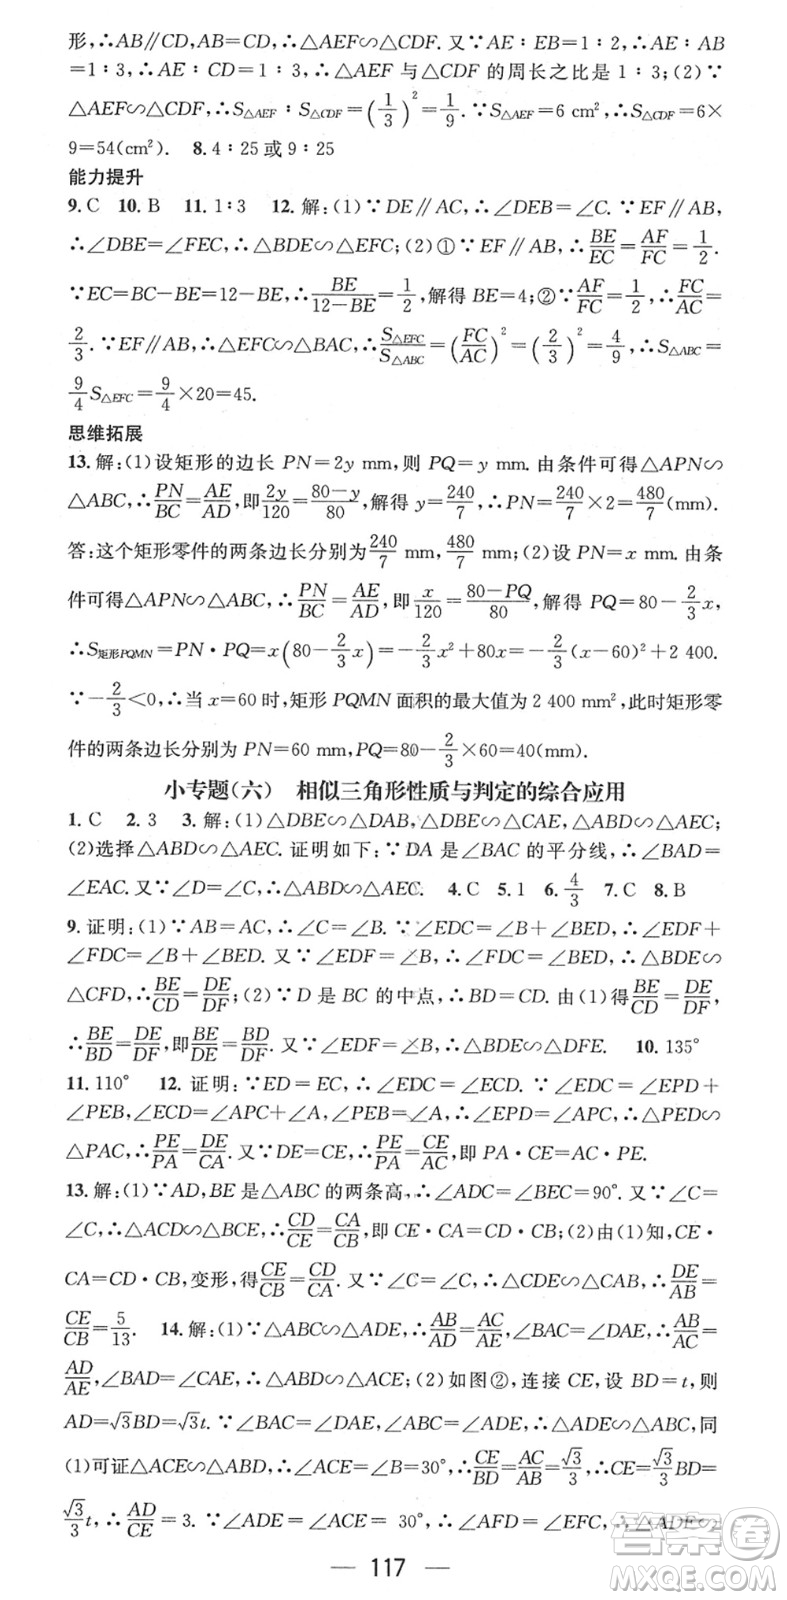 形,∴AB∥CD,AB=CD,∴△AEF∽△CDF.又∵AE∶EB=1∶2,∴AE∶AB
=1∶3,∴AE∶CD=1∶3,∴△AEF与△CDF的周长之比是1∶3;(2)∵
△AEF∽△CDF,∴S△AEF∶S△CDF=(1/3)²=1/9.∵S△AEF=6 cm²,∴S△CDF=6×
9=54(cm²). 8.4∶25或9∶25
能力提升
9.C 10.B 11.1∶3 12.解:(1)∵DE∥AC,∴∠DEB=∠C.∵EF∥AB,
∴∠DBE=∠FEC,∴△BDE∽△EFC;(2)①∵EF∥AB,∴BE/EC=AF/FC=1/2.
∵EC=BC-BE=12-BE,∴BE/(12-BE)=1/2,解得BE=4;②∵AF/FC=1/2,∴FC/AC=
2/3.∵EF∥AB,∴△EFC∽△BAC,∴S△EFC/S△ABC=(FC/AC)²=(2/3)²=4/9,∴S△ABC=
9/4 S△EFC=9/4×20=45.
思维拓展
13.解:(1)设矩形的边长PN=2y mm,则PQ=y mm.由条件可得△APN∽
△ABC,∴PN/BC=AE/AD,即2y/120=(80-y)/80,解得y=240/7,∴PN=240/7×2=480/7(mm).
答:这个矩形零件的两条边长分别为240/7 mm,480/7 mm;(2)设PN=x mm.由条
件可得△APN∽△ABC,∴PN/BC=AE/AD,即x/120=(80-PQ)/80,解得PQ=80-2/3x,
∴S矩形PQMN=PN·PQ=x(80-2/3x)=-2/3x²+80x=-2/3(x-60)²+2 400.
∵-2/3<0,∴当x=60时,矩形PQMN面积的最大值为2 400 mm²,此时矩形零
件的两条边长分别为PN=60 mm,PQ=80-2/3×60=40(mm).
小专题(六) 相似三角形性质与判定的综合应用
1.C 2.3 3.解:(1)△DBE∽△DAB,△DBE∽△CAE,△ABD∽△AEC;
(2)选择△ABD∽△AEC.证明如下:∵DA是∠BAC的平分线,∴∠BAD=
∠EAC.又∵∠D=∠C,∴△ABD∽△AEC. 4.C 5.1 6.4/3 7.C 8.B
9.证明:(1)∵AB=AC,∴∠C=∠B.∵∠EDC=∠B+∠BED,∴∠EDF+
∠FDC=∠B+∠BED.又∵∠EDF=∠B,∴∠FDC=∠BED,∴△BDE∽
△CFD,∴BE/CD=DE/DF;(2)∵D是BC的中点,∴BD=CD.由(1)得BE/CD=DE/DF,
∴BE/BD=DE/DF,即BE/DE=BD/DF.又∵∠EDF=∠B,∴△BDE∽△DFE. 10.135°
11.110° 12.证明:∵ED=EC,∴∠EDC=∠ECD.∵∠EDC=∠EPD+
∠PEB,∠ECD=∠APC+∠A,∠PEB=∠A,∴∠EPD=∠APC,∴△PED∽
△PAC,∴PE/PA=DE/CA.又∵DE=CE,∴PE/PA=CE/AC,即PA·CE=AC·PE.
13.解:(1)∵AD,BE是△ABC的两条高,∴∠ADC=∠BEC=90°.又∵∠C=
∠C,∴△ACD∽△BCE,∴CD/CE=CA/CB,即CE·CA=CD·CB;(2)由(1)知,CE·
CA=CD·CB,变形,得CE/CB=CD/CA.又∵∠C=∠C,∴△CDE∽△CAB,∴DE/AB=
CE/CB=5/13. 14.解:(1)∵△ABC∽△ADE,∴AB/AD=AC/AE,∠BAC=∠DAE,∴AB/AC=
AD/AE,∠BAD=∠CAE,∴△ABD∽△ACE;(2)如图②,连接CE,设BD=t,则
AD=√3BD=√3t.∵∠BAC=∠DAE,∠ABC=∠ADE,∴△ABC∽△ADE,同
(1)可证△ACE∽△ABD,∴∠ACE=∠B=30°,∴CE/BD=AC/AB=√3/3,∴CE=√3/3BD=
√3/3t,∴AD/CE=3.∵∠ADE=∠ACE=30°,∴∠AFD=∠EFC,∴△ADF∽
117
答案圈
MXQE.COM